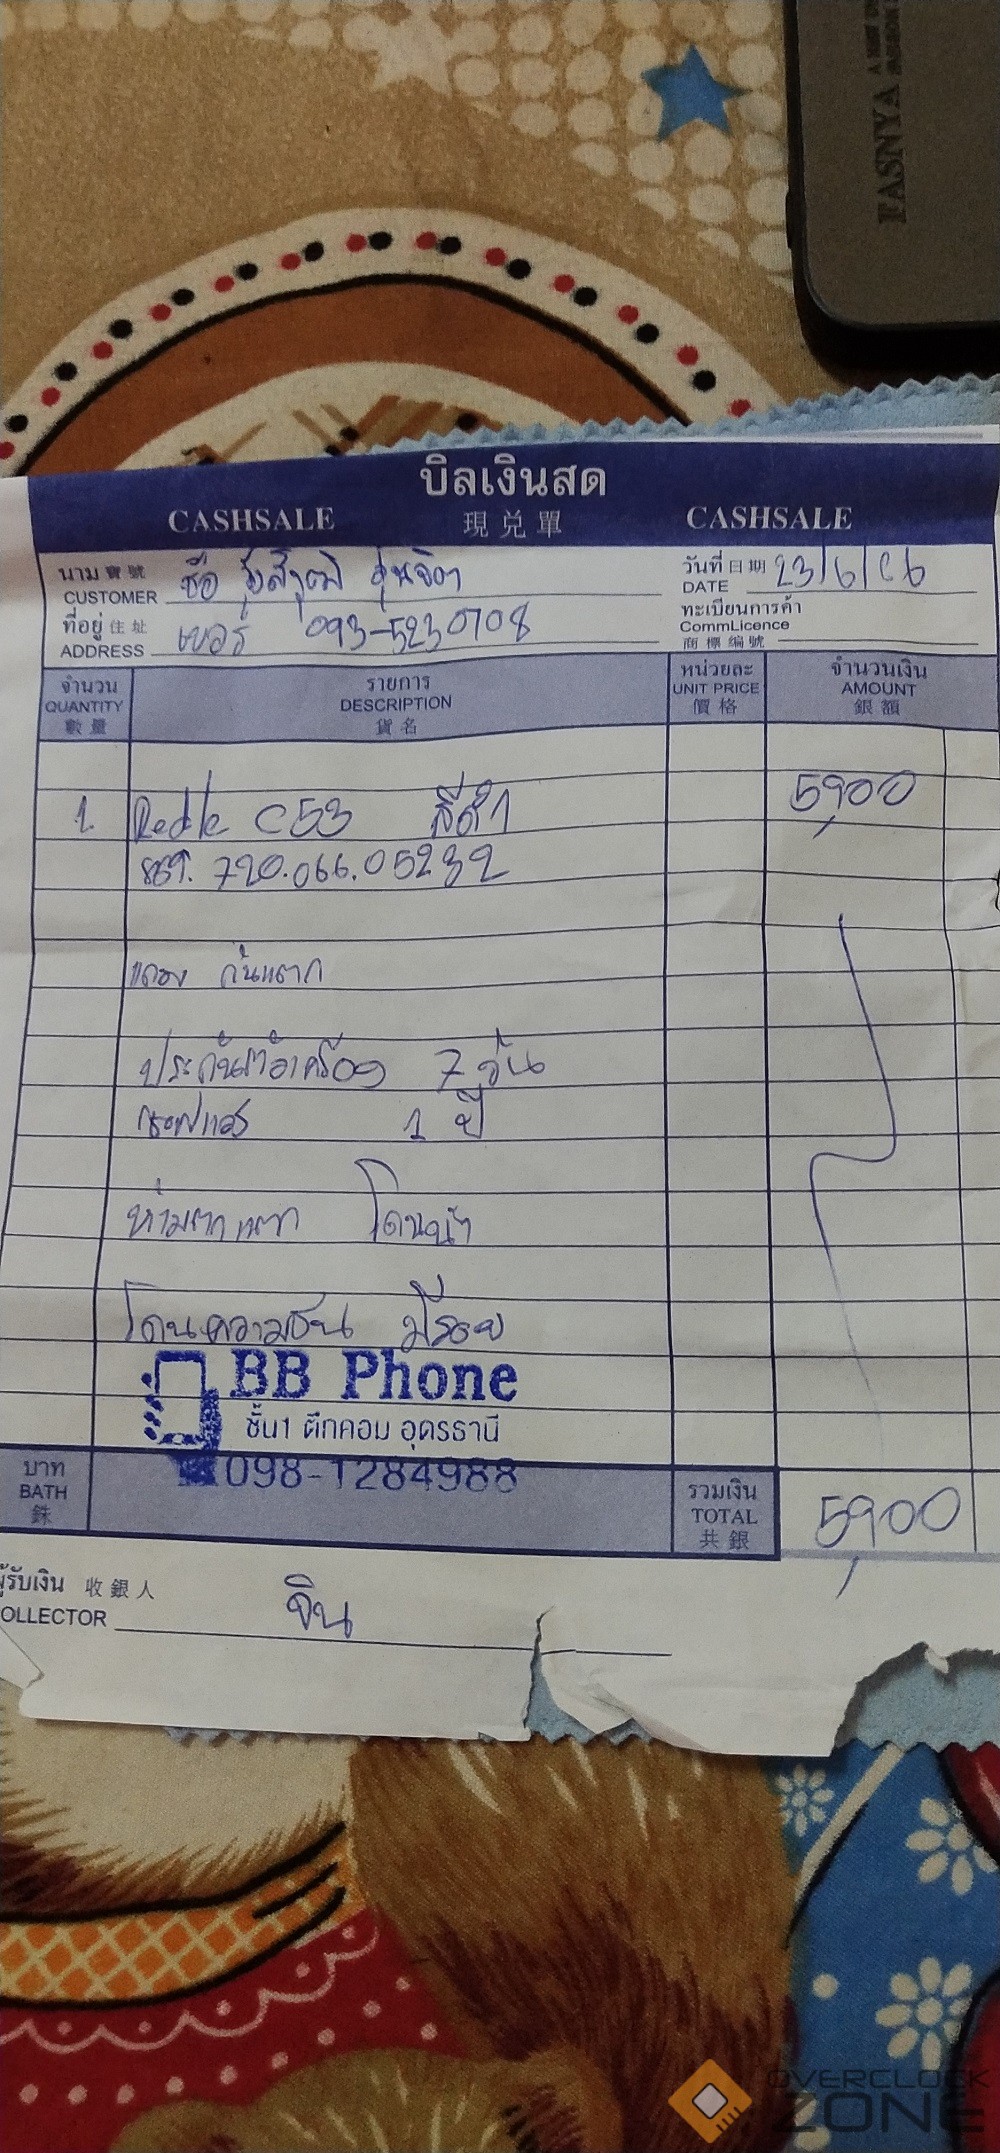 FASNYA
บิลเงินสด
CASHSALE 現兌單 CASHSALE
นาม 寶號 CUSTOMER ชื่อ
วันที่ 日期 DATE 23/6/66
ที่อยู่ 住址 ADDRESS เบอร์ 093-5230708
ทะเบียนการค้า CommLicence 商標編號
จำนวน QUANTITY 數量
รายการ DESCRIPTION 貨名
หน่วยละ UNIT PRICE 價格
จำนวนเงิน AMOUNT 銀額
1 C53 สีดำ 5,900
720.066.05232
แถม กันแตก
ประกันตัวเครื่อง 7 วัน
ซอฟแวร์ 1 ปี
ห้ามตก แตก โดนน้ำ
โดนความชื้น มีรอย
BB Phone
ชั้น1 ตึกคอม อุดรธานี
098-1284988
บาท BATH 銖
รวมเงิน TOTAL 共銀 5,900
ผู้รับเงิน 收銀人 COLLECTOR จิน
OVERCLOCK
ZONE